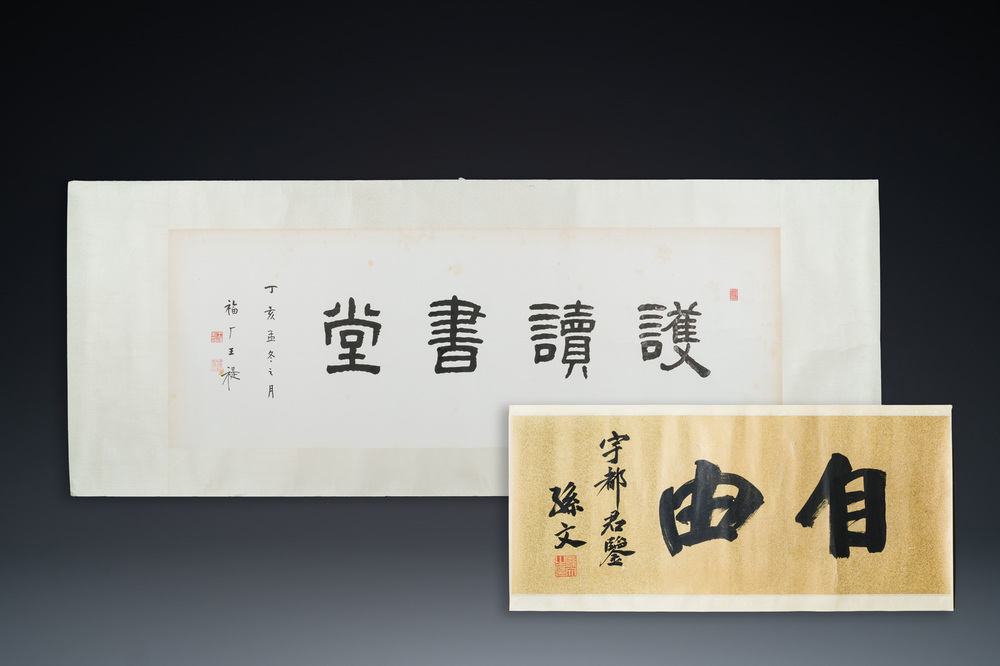 護讀書堂
丁亥孟冬之月
福厂王禔
自由
宇都君鑒
孫文